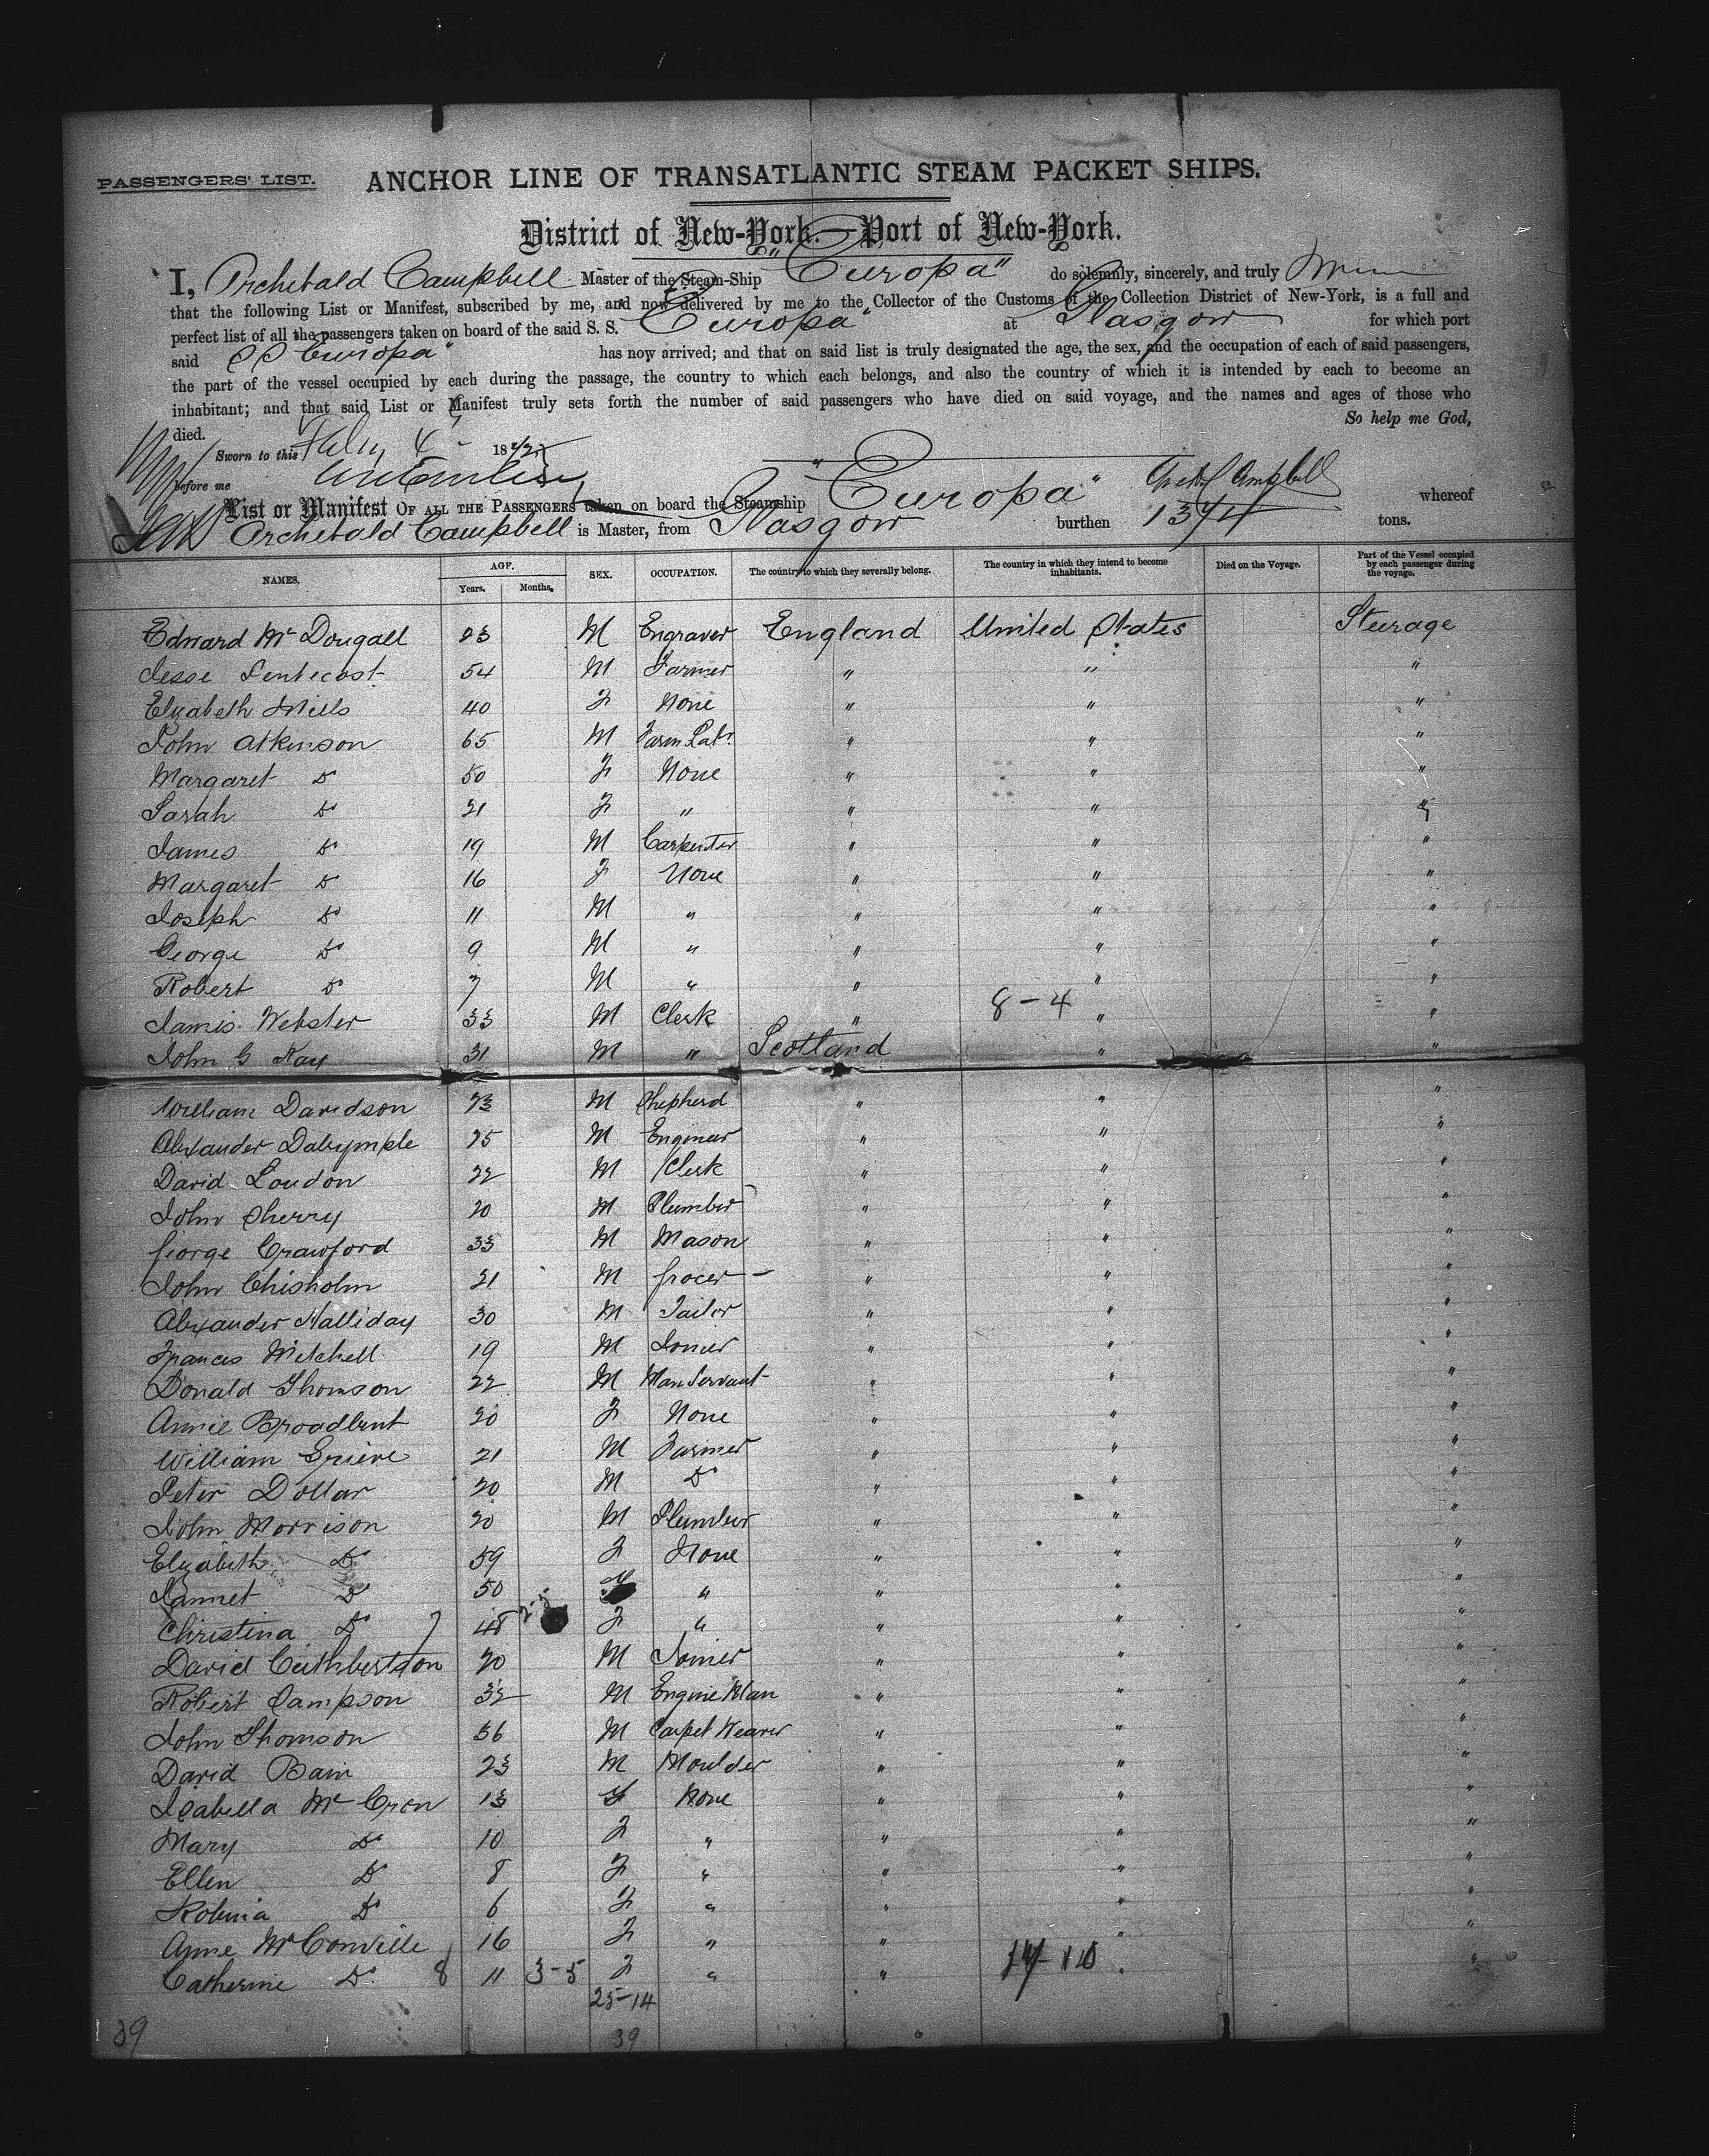 PASSENGERS' LIST. ANCHOR LINE OF TRANSATLANTIC STEAM PACKET SHIPS.
District of New-York.—Port of New-York.
I, Archibald Campbell Master of the Steam-Ship "Europa" do solemnly, sincerely, and truly
that the following List or Manifest, subscribed by me, and now delivered by me to the Collector of the Customs of the Collection District of New-York, is a full and
perfect list of all the passengers taken on board of the said S. S. "Europa" at Glasgow for which port
said SS Europa" has now arrived; and that on said list is truly designated the age, the sex, and the occupation of each of said passengers,
the part of the vessel occupied by each during the passage, the country to which each belongs, and also the country of which it is intended by each to become an
inhabitant; and that said List or Manifest truly sets forth the number of said passengers who have died on said voyage, and the names and ages of those who
died. So help me God,
Sworn to this 4 18
Before me Archd Campbell
List or Manifest OF ALL THE PASSENGERS taken on board the Steamship "Europa" whereof
Archibald Campbell is Master, from Glasgow burthen 1374 tons.
NAMES. AGE. Years. Months. SEX. OCCUPATION. The country to which they severally belong. The country in which they intend to become inhabitants. Died on the Voyage. Part of the Vessel occupied by each passenger during the voyage.
Edward McDougall 23 M Engraver England United States Steerage
Jesse Pentecost 54 M Farmer " " "
Elizabeth Mills 40 F None " " "
John Atkinson 65 M Farm Labr. " " "
Margaret Do 50 F None " " "
Sarah Do 21 F " " " "
James Do 19 M Carpenter " " "
Margaret Do 16 F None " " "
Joseph Do 11 M " " " "
George Do 9 M " " " "
Robert Do 7 M " " " "
James Webster 33 M Clerk " 8-4 " "
John G Kay 31 M " Scotland " "
William Davidson 23 M Shepherd " " "
Alexander Dalrymple 25 M Engineer " " "
David Loudon 22 M Clerk " " "
John Sherry 20 M Plumber " " "
George Crawford 33 M Mason " " "
John Chisholm 21 M Grocer " " "
Alexander Halliday 30 M Tailor " " "
Frances Mitchell 19 M Joiner " " "
Donald Thomson 22 M Man Servant " " "
Annie Broadbent 20 F None " " "
William Grieve 21 M Farmer " " "
Peter Dollar 20 M Do " " "
John Morrison 20 M Plumber " " "
Elizabeth Do 59 F None " " "
Jannet Do 50 " " " "
Christina Do 7 48 F " " " "
David Cuthbertson 20 M Joiner " " "
Robert Sampson 32 M Engine Man " " "
John Thomson 36 M Carpet Weaver " " "
David Bain 23 M Moulder " " "
Isabella McCron 13 F None " " "
Mary Do 10 F " " " "
Ellen Do 8 F " " " "
Robina Do 6 F " " " "
Anne McConville 16 F " " " "
Catherine Do. 8 11 3-5 F " " 17-10 " "
25-14
39 39